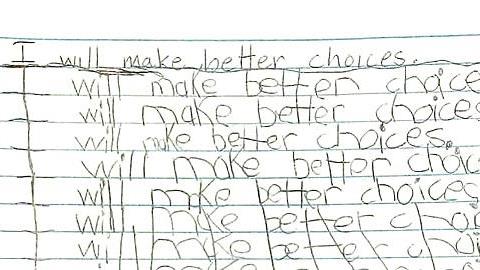 I will make better choices.
will make better choice
will make better choices
will make better choices.
will make better choic
will make better choices
will make better choi
will make better choi